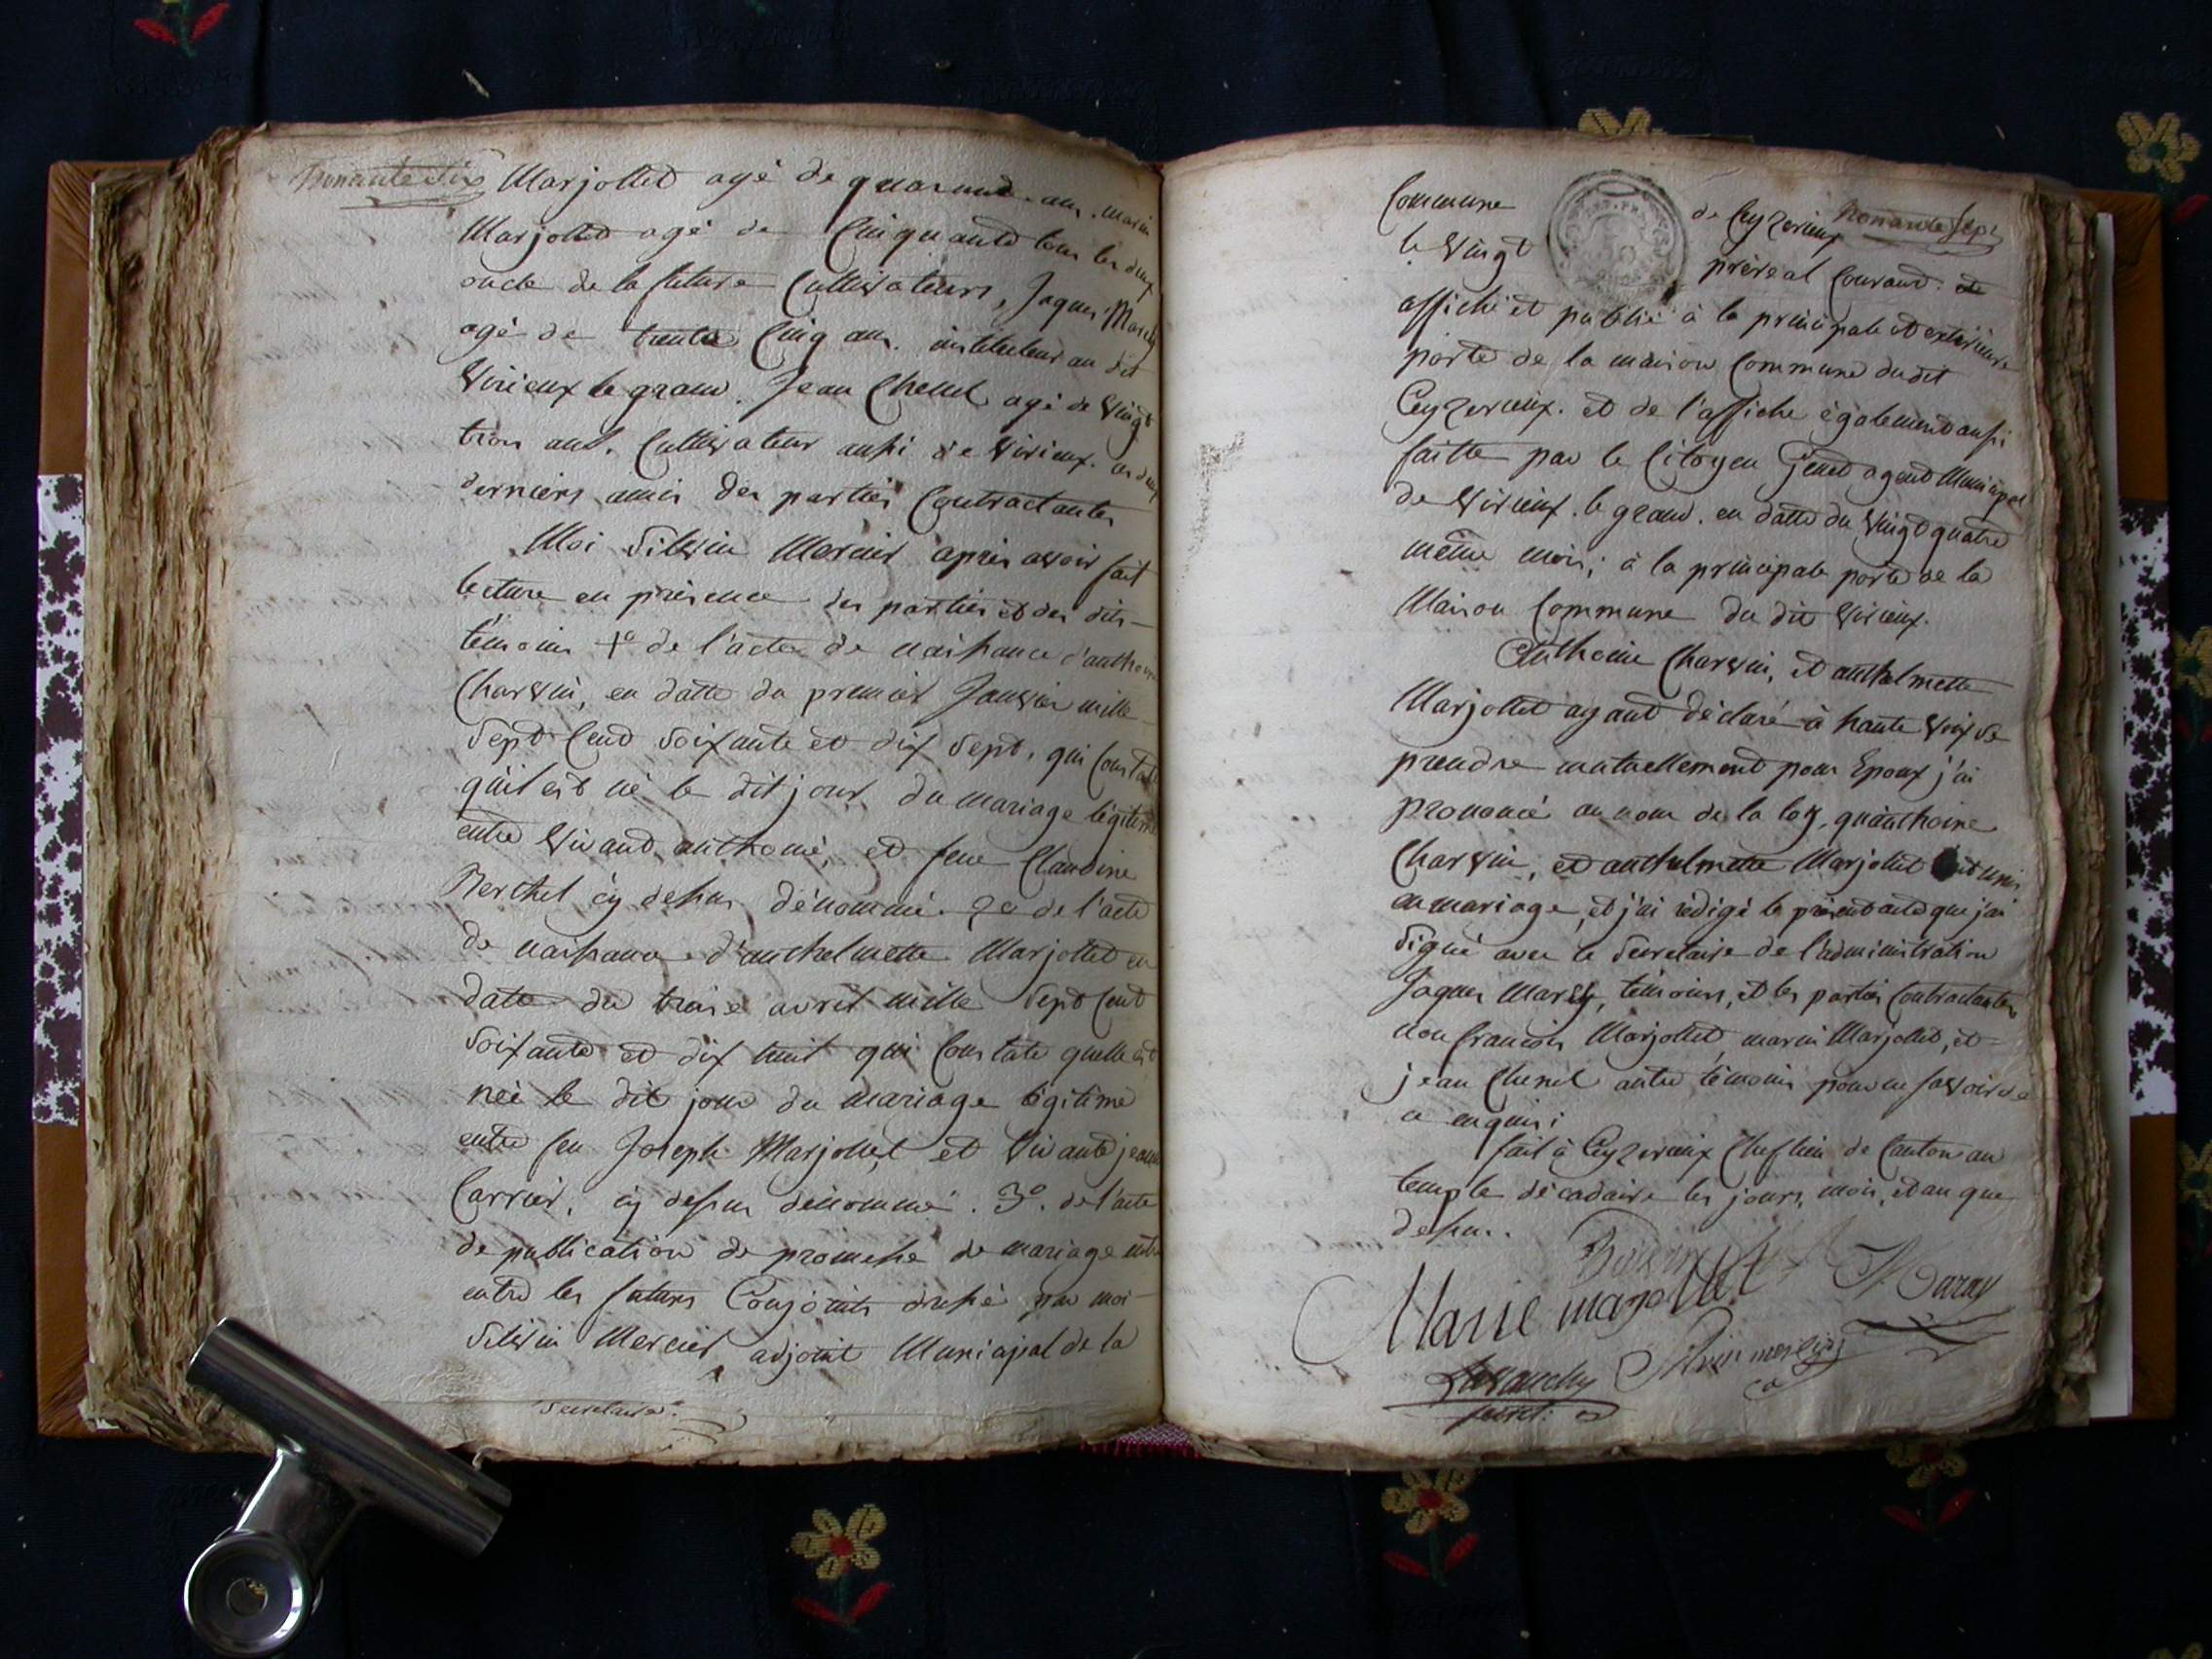 Nonante Six
Marjollet agé de quarante ans. marin
Marjollet agé de Cinquante tous les deux
oncle de la future Cultivateurs, Jaques Marey
agé de trente Cinq ans. instituteur au dit
Virieux le grand. Jean Chenel agé de Vingt
trois ans. Cultivateur aussi de Virieux. ces deux
derniers amis des parties Contractantes
Moi Silvin Mercier après avoir fait
lecture en présence des parties et des dits
témoins 1º de l'acte de naissance d'anthoine
Charvin, en datte du premier Janvier mille
Sept Cent Soixante et dix Sept, qui Constate
qu'il est né le dit jour du mariage légitime
entre Vivant anthoine, et feue Claudine
Berthet cy dessus dénommé. 2º de l'acte
de naissance d'anthelmette Marjollet en
date du treise avril mille Sept Cent
Soixante et dix huit qui Constate quelle est
née le dit jour du mariage légitime
entre feu Joseph Marjollet et Vivante jeanne
Carrier, cy dessus dénommé. 3º. de l'acte
de publication de promesse de mariage
entre les futurs Conjoints dressé par moi
Silvin Mercier adjoint Municipal de la
Secretaire.
Nonante Sept
Commune de Ceyzerieux
le Vingt prereal Courant. et
affiché et publié à la principale et extérieure
porte de la maison Commune dudit
Ceyzerieux. et de l'affiche également aussi
faitte par le Citoyen Genet agent Municipal
de Virieux. le grand. en datte du Vingt quatre
même mois; à la principale porte de la
Maison Commune du dit Virieux.
Anthoine Charvin, et anthelmette
Marjollet ayant déclaré à haute Voix Se
prendre mutuellement pour Epoux j'ai
prononcé au nom de la loy, qu'anthoine
Charvin, et anthelmette Marjollet sont unis
en mariage, et j'ai rédigé le présent acte que j'ai
Signé avec le Secretaire de l'administration
Jaques Marey, témoins, et les parties Contractantes
non francois Marjollet, marin Marjollet, et
jean Chenel autre témoins pour ne Savoir de
ce enquis;
fait à Ceyzerieux Cheflieu de Canton au
temple décadaire les jours, mois, et an que
dessus.
Marie majollet
J. Maray
Silvin mercier
secret: